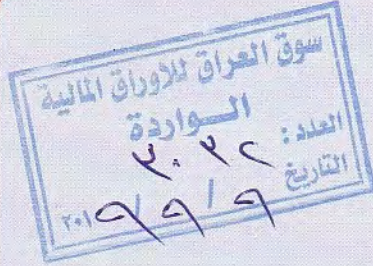 سوق العراق للاوراق المالية
الـواردة
العدد : ٣٠٣٢
التاريخ ٩ / ٩ / ٢٠١٩